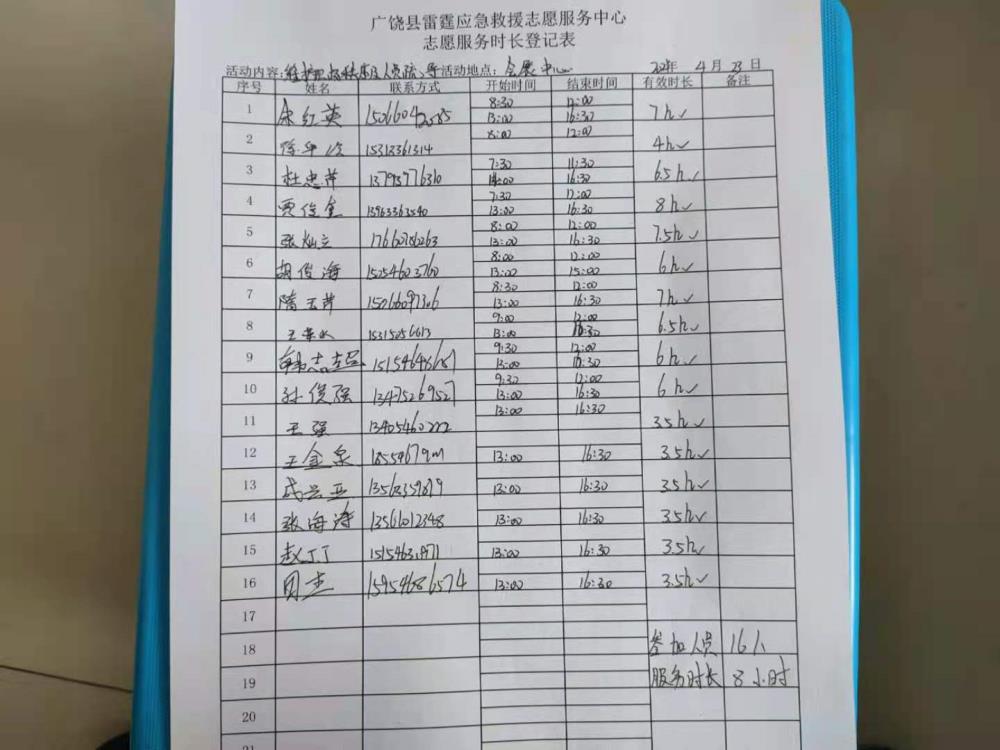 广饶县雷霆应急救援志愿服务中心
志愿服务时长登记表
活动内容: 活动地点: 会展中心 4月23日
序号 姓名 联系方式 开始时间 结束时间 有效时长 备注
1 宋红英 8:30 12:00 13:00 16:30 7h
2 15313361314 8:00 12:00 4h
3 杜忠祥 13793776310 7:30 11:30 14:00 16:30 6.5h
4 贾俊奎 13963363540 7:30 12:00 13:00 16:30 8h
5 张灿立 8:00 12:00 13:00 16:30 7.5h
6 胡俊海 15054603760 8:00 12:00 13:00 15:00 6h
7 隋玉萍 8:30 12:00 13:00 16:30 7h
8 15315056613 9:00 12:00 13:00 16:30 6.5h
9 韩志超 9:30 12:00 13:00 16:30 6h
10 孙俊强 13475269527 9:30 12:00 13:00 16:30 6h
11 王强 13405460222 13:00 16:30 3.5h
12 王金泉 13:00 16:30 3.5h
13 成兰亚 13:00 16:30 3.5h
14 张海涛 13561012348 13:00 16:30 3.5h
15 赵丁丁 13:00 16:30 3.5h
16 周杰 15954686574 13:00 16:30 3.5h
17
18 参加人员 16人
19 服务时长 8小时
20
21